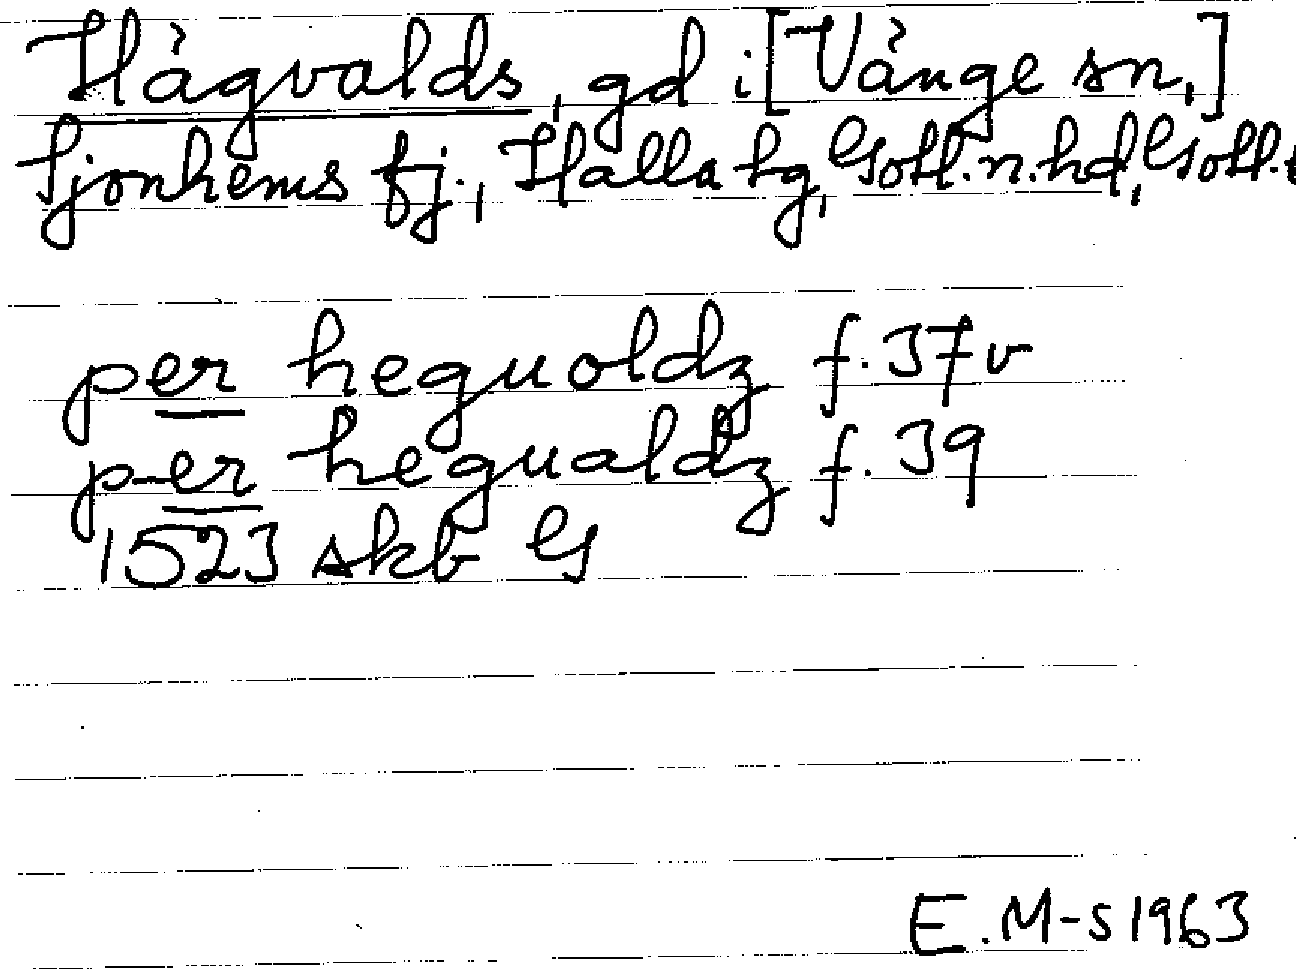 Hägvalds, gd i [Vänge sn,]
Sjonhems fj., Halla tg, Gotl. n. hd, Gotl.
per heguoldz f. 37v
per hegualdz f. 39
1523 skb G
E. M-s 1963